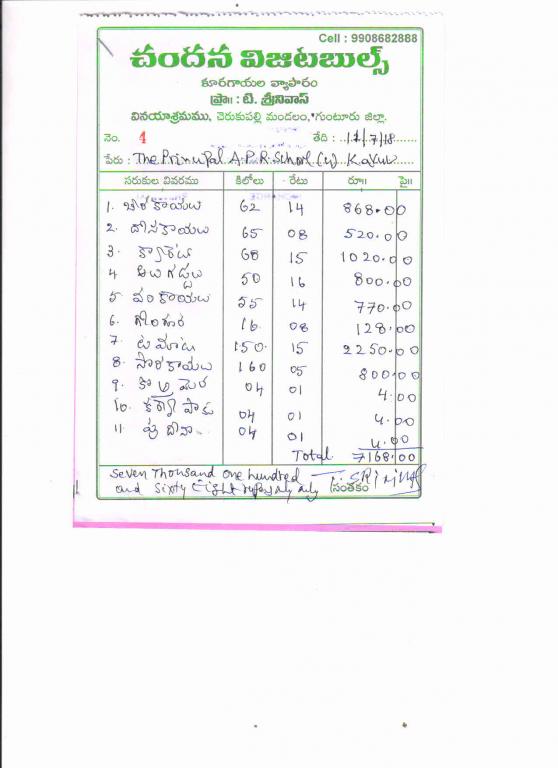 Cell : 9908682888
చందన విజిటబుల్స్
కూరగాయల వ్యాపారం
ప్రొ॥ టి. శ్రీనివాస్
వినయాశ్రమము, చెరుకుపల్లి మండలం, గుంటూరు జిల్లా.
నెం. 4 తేది : 12/7/18
పేరు : The Prinupal A.P.R. School (u) Kavur
సరుకుల వివరము కిలోలు రేటు రూ॥ పై॥
1. బీరకాయలు 62 14 868.00
2. దోసకాయలు 65 08 520.00
3. క్యారెట్ 68 15 1020.00
4 ఆలుగడ్డలు 50 16 800.00
5 వంకాయలు 55 14 770.00
6. గోంగూర 16 08 128.00
7. టమోటా 150. 15 2250.00
8. సొరకాయలు 160 05 800.00
9. కొత్తిమీర 04 01 4.00
10. కర్వేపాకు 04 01 4.00
11. పుదీనా 04 01 4.00
Total 7168.00
Seven Thousand one hundred
and Sixty Eight rupees only
T. SRINIVAS
సంతకం